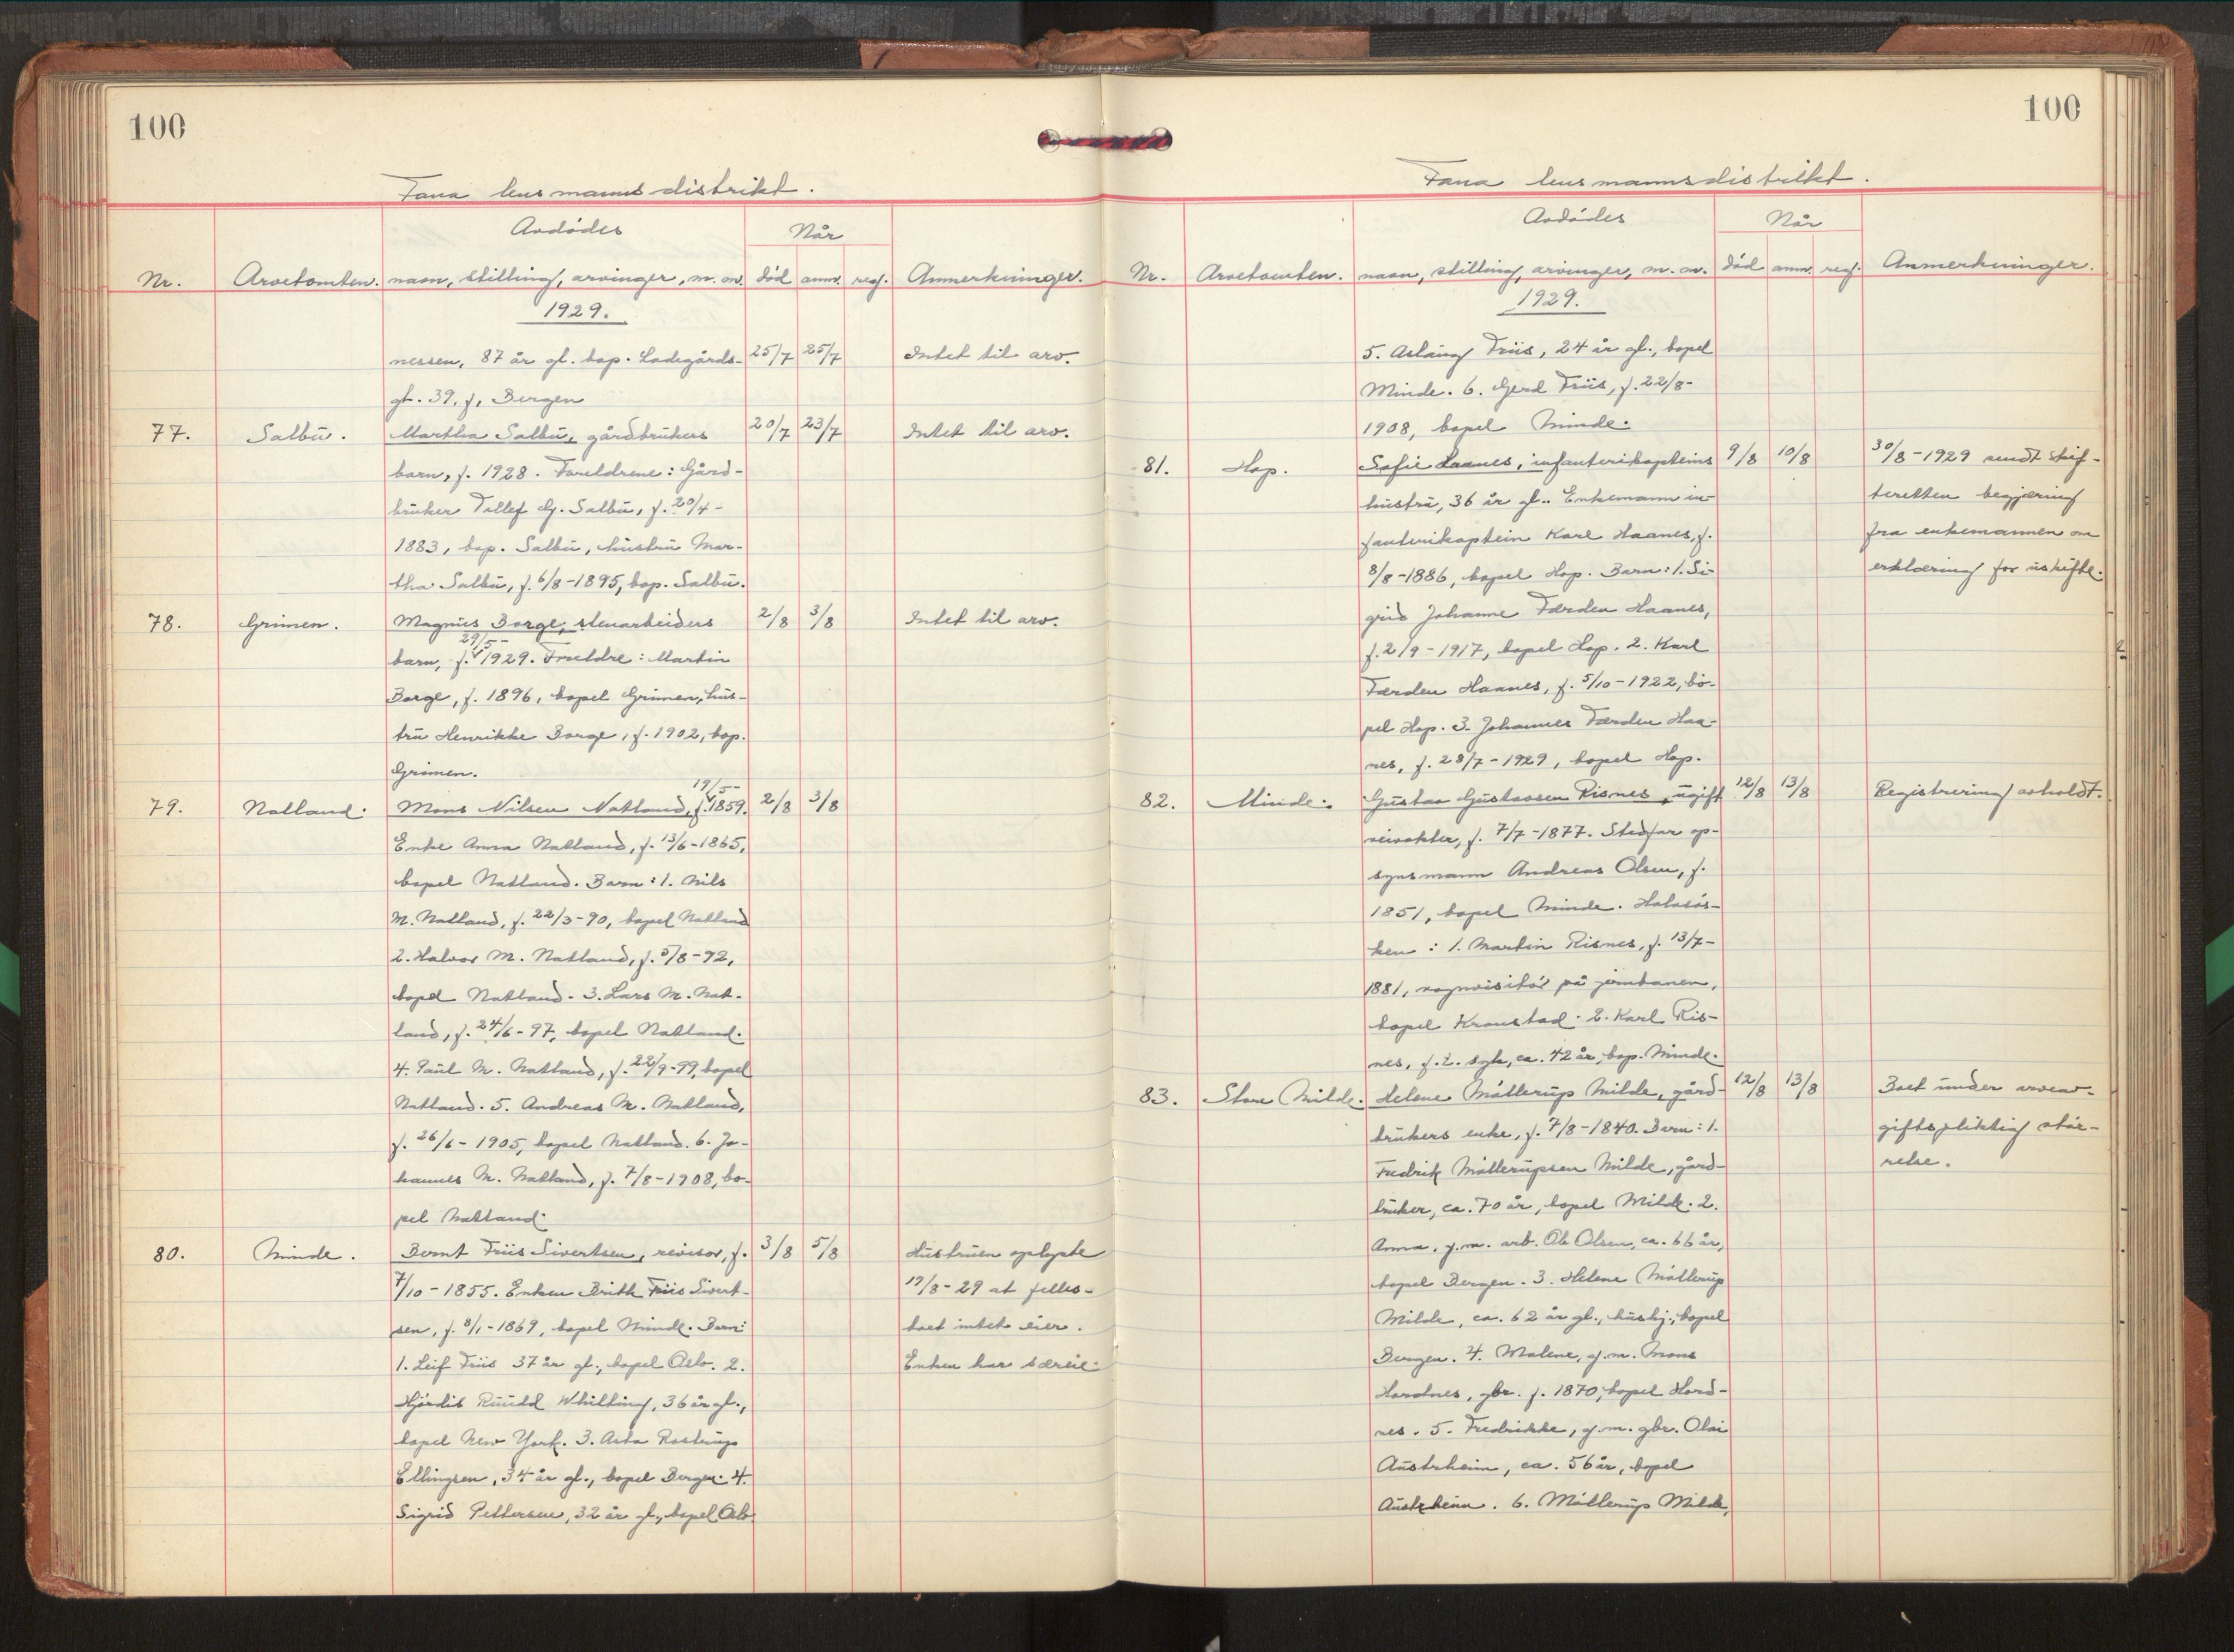 100
Fana lensmannsdistrikt.
Avdødes
Når
Nr. Arvetomten. navn, stilling, arvinger, m. m. død anm. reg. Anmerkninger.
1929.
nessen, 87 år gl. bop. Ladegårds- 25/7 25/7 Intet til arv.
gt. 39, Bergen
77. Salbu. Martha Salbu, gårdbrukers 20/7 23/7 Intet til arv.
barn, f. 1928. Foreldrene: Gård-
bruker Tellef G. Salbu, f. 20/4-
1883, bop. Salbu, hustru Mar-
tha Salbu, f. 6/8-1895, bop. Salbu.
78. Grimen. Magnus Borge, stenarbeiders 2/8 3/8 Intet til arv.
barn, f. 29/5- 1929. Foreldre: Martin
Borge, f. 1896, bopel Grimen, hus-
tru Henrikke Borge, f. 1902, bop.
Grimen.
79. Natland. Mons Nilsen Natland, f. 19/5- 1859. 2/8 3/8
Enke Anna Natland, f. 13/6-1865,
bopel Natland. Barn: 1. Nils
M. Natland, f. 22/3-90, bopel Natland
2. Halvor M. Natland, f. 5/8-92,
bopel Natland. 3. Lars M. Nat-
land, f. 24/6-97, bopel Natland.
4. Paul M. Natland, f. 22/9-99, bopel
Natland. 5. Andreas M. Natland,
f. 26/6-1905, bopel Natland. 6. Jo-
hannes M. Natland, f. 7/8-1908, bo-
pel Natland.
80. Minde. Bernt Friis Sivertsen, revisor, f. 3/8 5/8 Hustruen oplyste
7/10-1855. Enken Brith Friis Sivert- 19/8-29 at felles-
sen, f. 8/1-1869, bopel Minde. Barn: boet intet eier.
1. Leif Friis 37 år gl., bopel Oslo. 2. Enken har særeie.
Hjørdis Whilling, 36 år gl.,
bopel New York. 3. Asta Rostrup
Ellingsen, 34 år gl., bopel Bergen. 4.
Sigrid Pettersen, 32 år gl., bopel Oslo
100
Fana lensmannsdistrikt.
Avdødes
Når
Nr. Arvetomten. navn, stilling, arvinger, m. m. død anm. reg. Anmerkninger.
1929.
5. Aslaug Friis, 24 år gl., bopel
Minde. 6. Gerd Friis, f. 22/8-
1908, bopel Minde.
81. Hop. Sofie Haanes, infanterikapteins 9/8 10/8 30/8-1929 sendt skif-
hustru, 36 år gl.. Enkemann in- teretten begjæring
fanterikaptein Karl Haanes, f. fra enkemannen om
8/8-1886, bopel Hop. Barn: 1. Si- erklæring for uskifte.
grid Johanne Færden Haanes,
f. 2/9-1917, bopel Hop. 2. Karl
Færden Haanes, f. 5/10-1922, bo-
pel Hop. 3. Johannes Færden Haa-
nes, f. 28/7-1929, bopel Hop.
82. Minde. Gustav Gustavsen Risnes, ugift 12/8 13/8 Registrering avholdt.
veivokter, f. 7/7-1877. Stedfar op-
synsmann Andreas Olsen, f.
1851, bopel Minde. Halvsøs-
ken: 1. Martin Risnes, f. 13/7-
1881, vognvisitør på jernbanen,
bopel Kronstad. 2. Karl Ris-
nes, f. t. syk, ca. 42 år, bop. Minde.
83. Store Milde. Helene Møllerup Milde, gård- 12/8 13/8 Boet under arveav-
brukers enke, f. 7/8-1840. Barn: 1. giftspliktig stør-
Fredrik Møllerupsen Milde, gård- relse.
bruker, ca. 70 år, bopel Milde. 2.
Anna, g.m. arb. Ole Olsen, ca. 66 år,
bopel Bergen. 3. Helene Møllerup
Milde, ca. 62 år gl., hushj., bopel
Bergen. 4. Malene, g.m. Mons
Hordnes, gbr. f. 1870, bopel Hord-
nes. 5. Fredrikke, g.m. gbr. Olai
Austrheim, ca. 56 år, bopel
Austrheim. 6. Møllerup Milde,